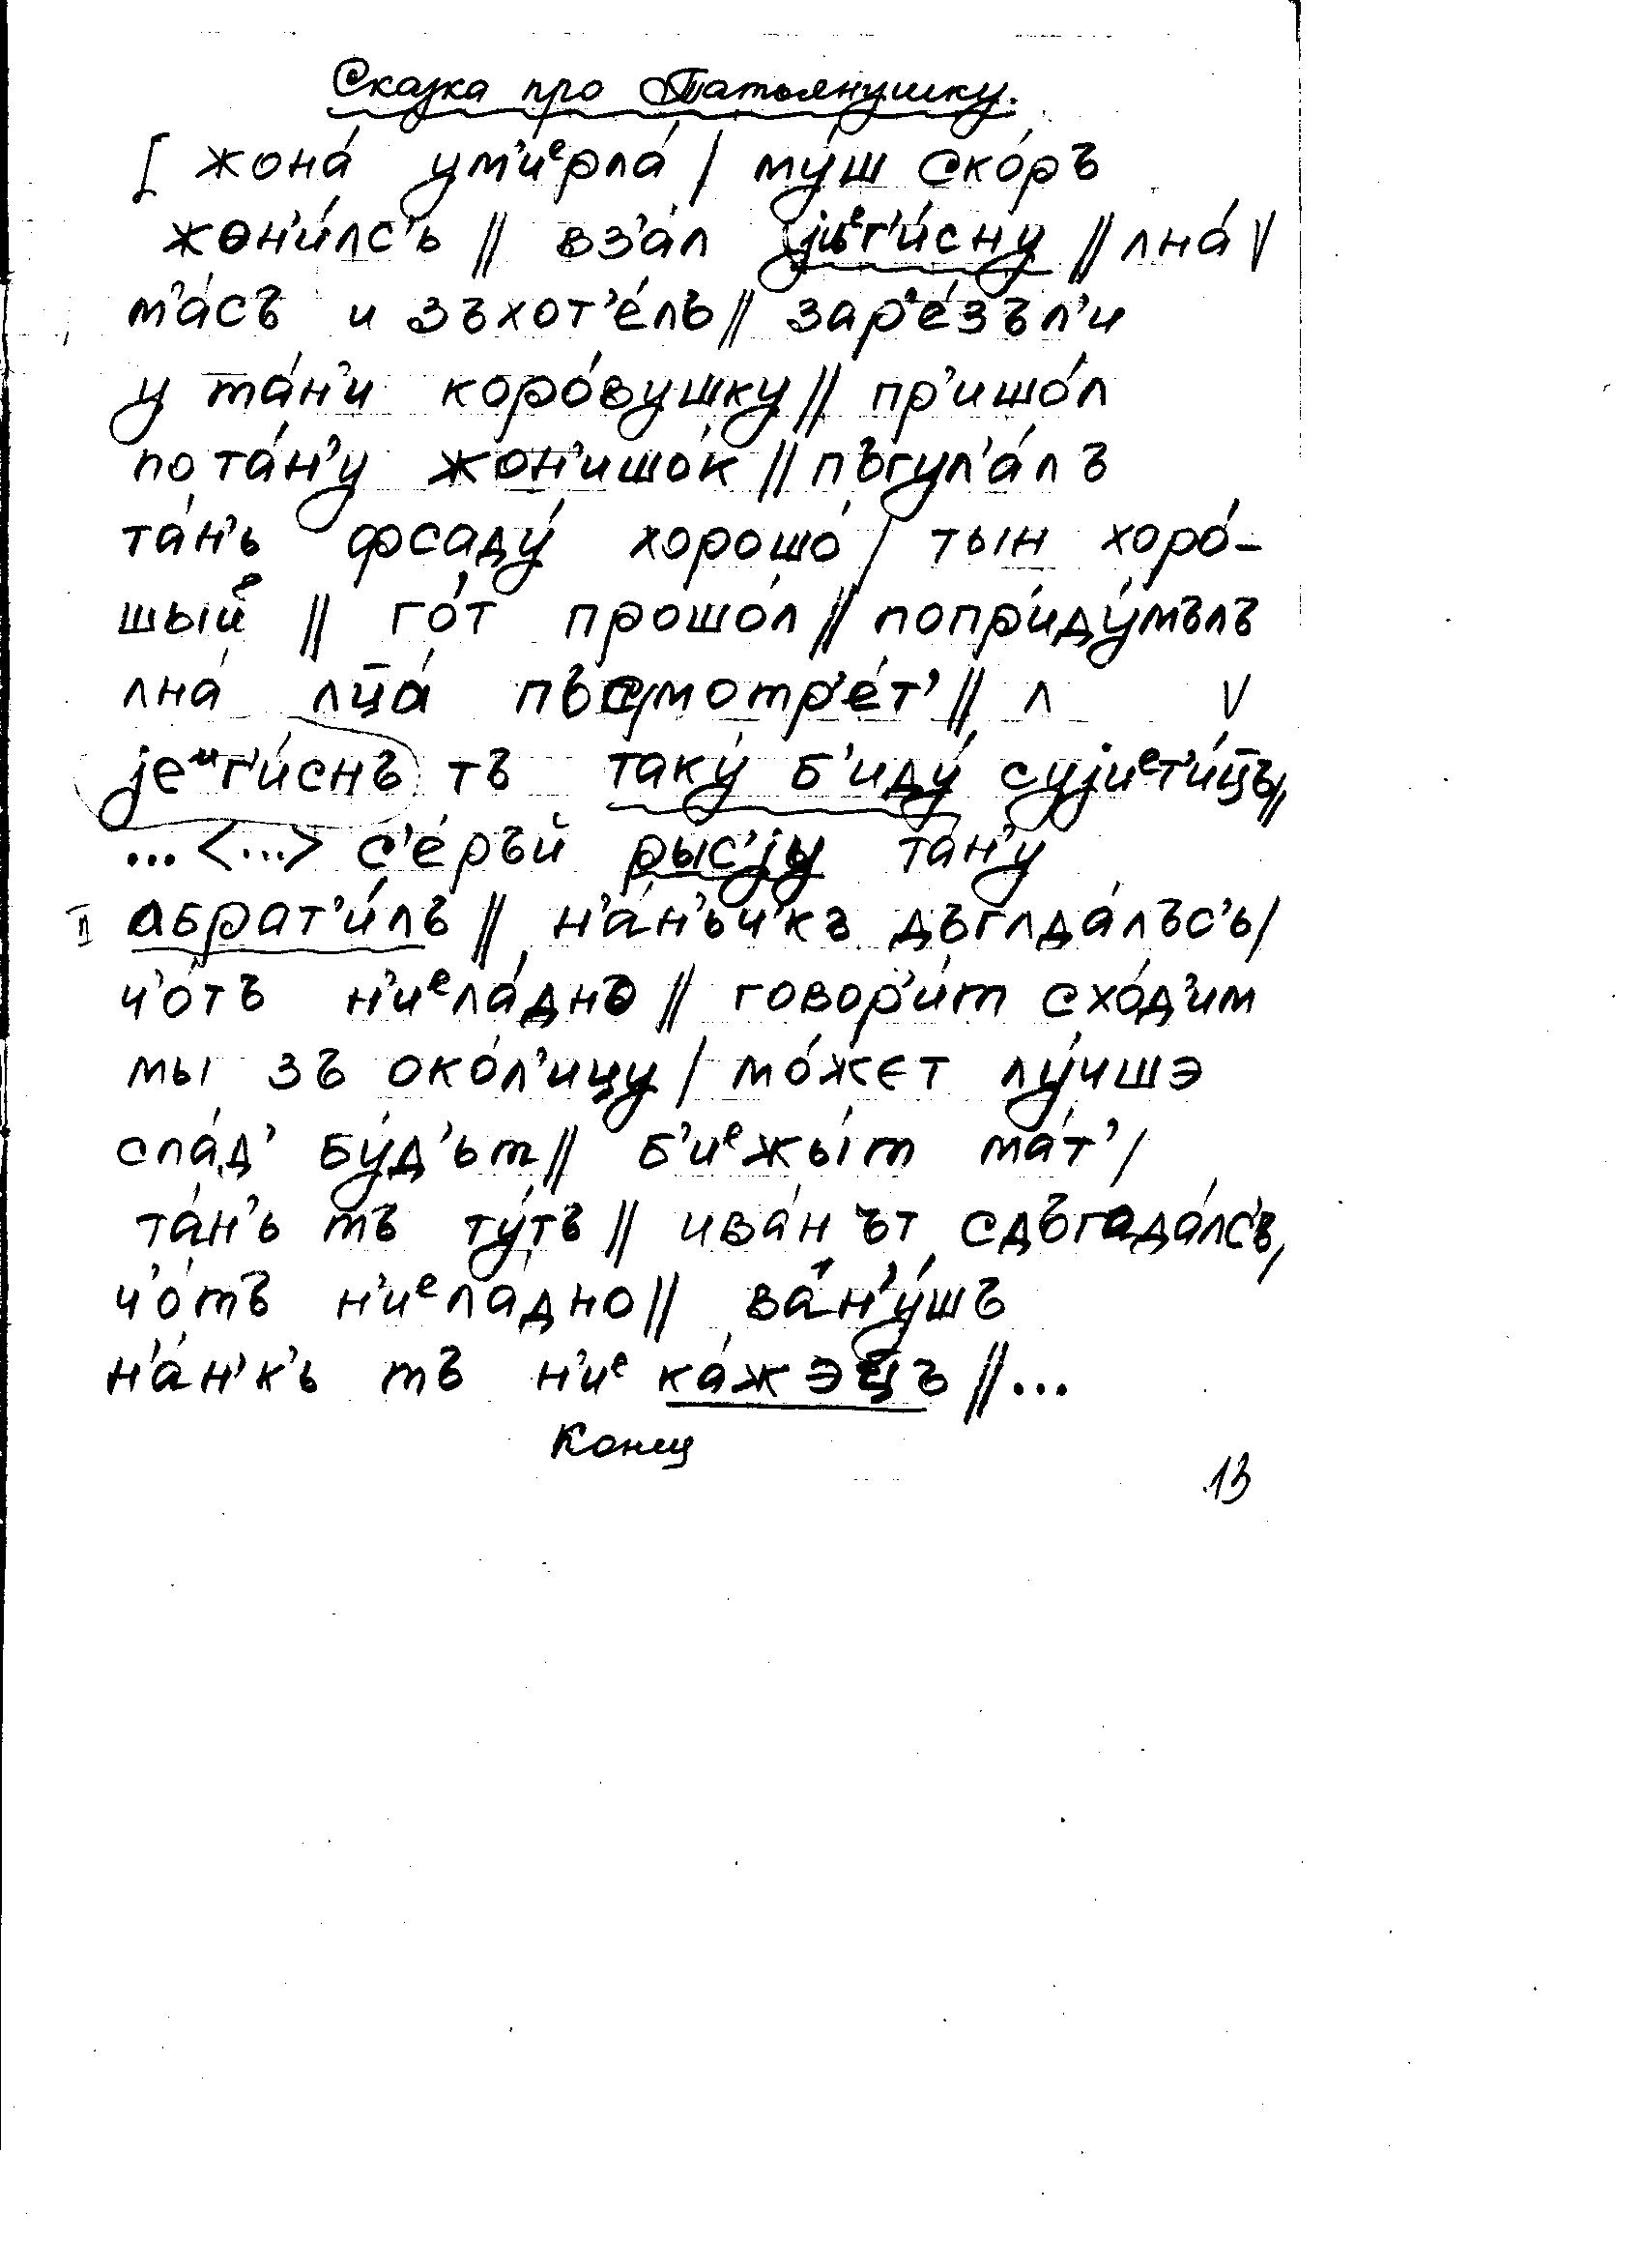 Сказка про Татьянушку.
[ жона́ ум'иᵉрла́ / му́ш ско́ръ
жон'и́лс'ь // вз'а́л jиᵉг'и́сну // ʌна́ V
м'а́съ и зъхот'е́лъ // зар'е́зъл'и
у та́н'и коро́вушку // пр'ишо́л
по та́н'у жон'ишо́к // пъгул'а́лъ
та́н'ь фсаду́ хорошо́ / тын хоро́-
шыйᵉ // го́т прошо́л // попр'иду́мълъ
ʌна́ ʌц̅а́ пъсмотр'е́т' // ʌ V
jеᴎг'и́снъ тъ таку́ б'иду́ суjиᵉт'и́ц̅ъ //
... <...> с'е́ръй рыс'jу та́н'у
II ʌбрат'и́лъ // н'а́н'ьч'къ дъгʌда́лъс'ь /
ч'о́тъ н'иᵉла́днъ // говор'и́т схо́д'им
мы зъ око́л'ицу / мо́жет лу́чшэ
спа́д' бу́д'ьт // б'иᵉжы́т ма́т' /
та́н'ь тъ ту́тъ // ива́н ът сдъгада́лс'ь,
ч'о́тъ н'иᵉла́дно // ва́н'у́шъ
н'а́н'к'ь тъ н'иᵉ ка́жэцъ // ...
Конец
13